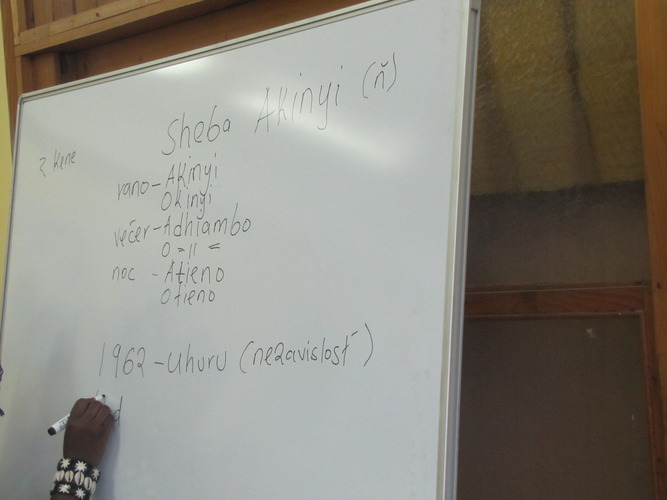 Sheba Akinyi (ň)
z Kene
rano - Akinyi
Okinyi
večer - Adhiambo
O = 11 =
noc - Atieno
Otieno
1962 - Uhuru (nezavislosť)